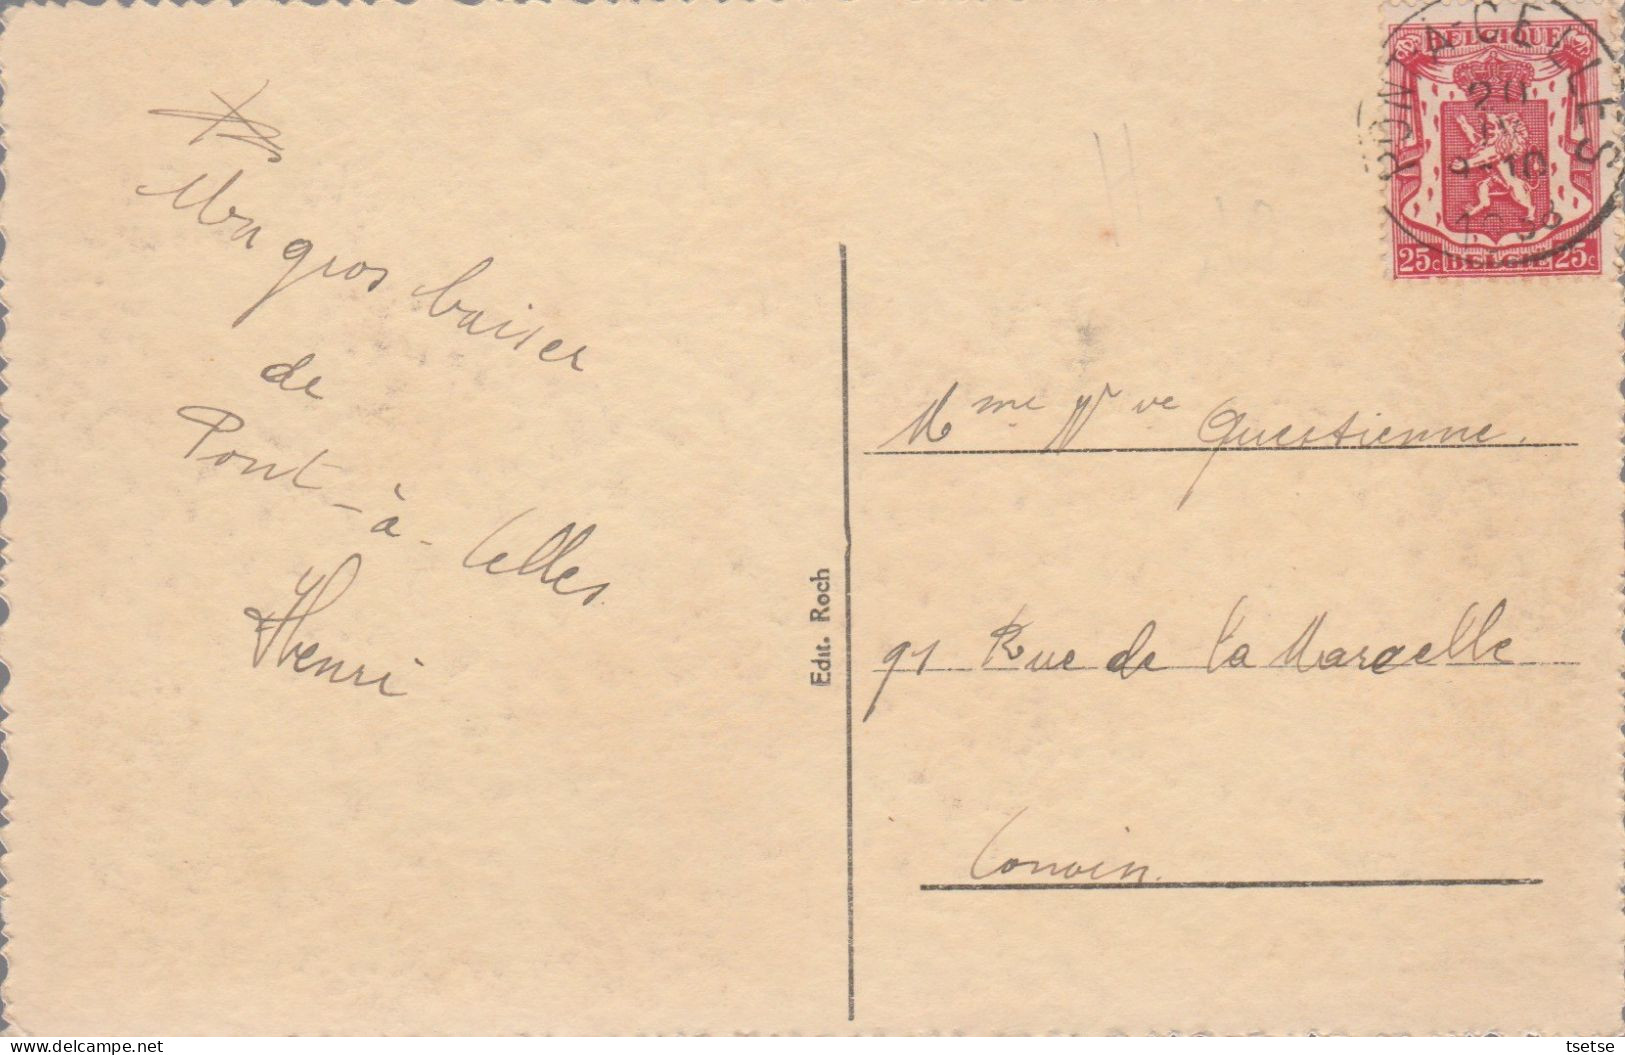 Un gros baiser
de
Pont-à-Celles
Henri
Edit. Roch
PONT-A-CELLES
20
9-10
BELGIQUE
25c BELGIE 25c
Mme Vve Questienne.
91 Rue de la Marcelle
Couvin.
delcampe.net
tsetse